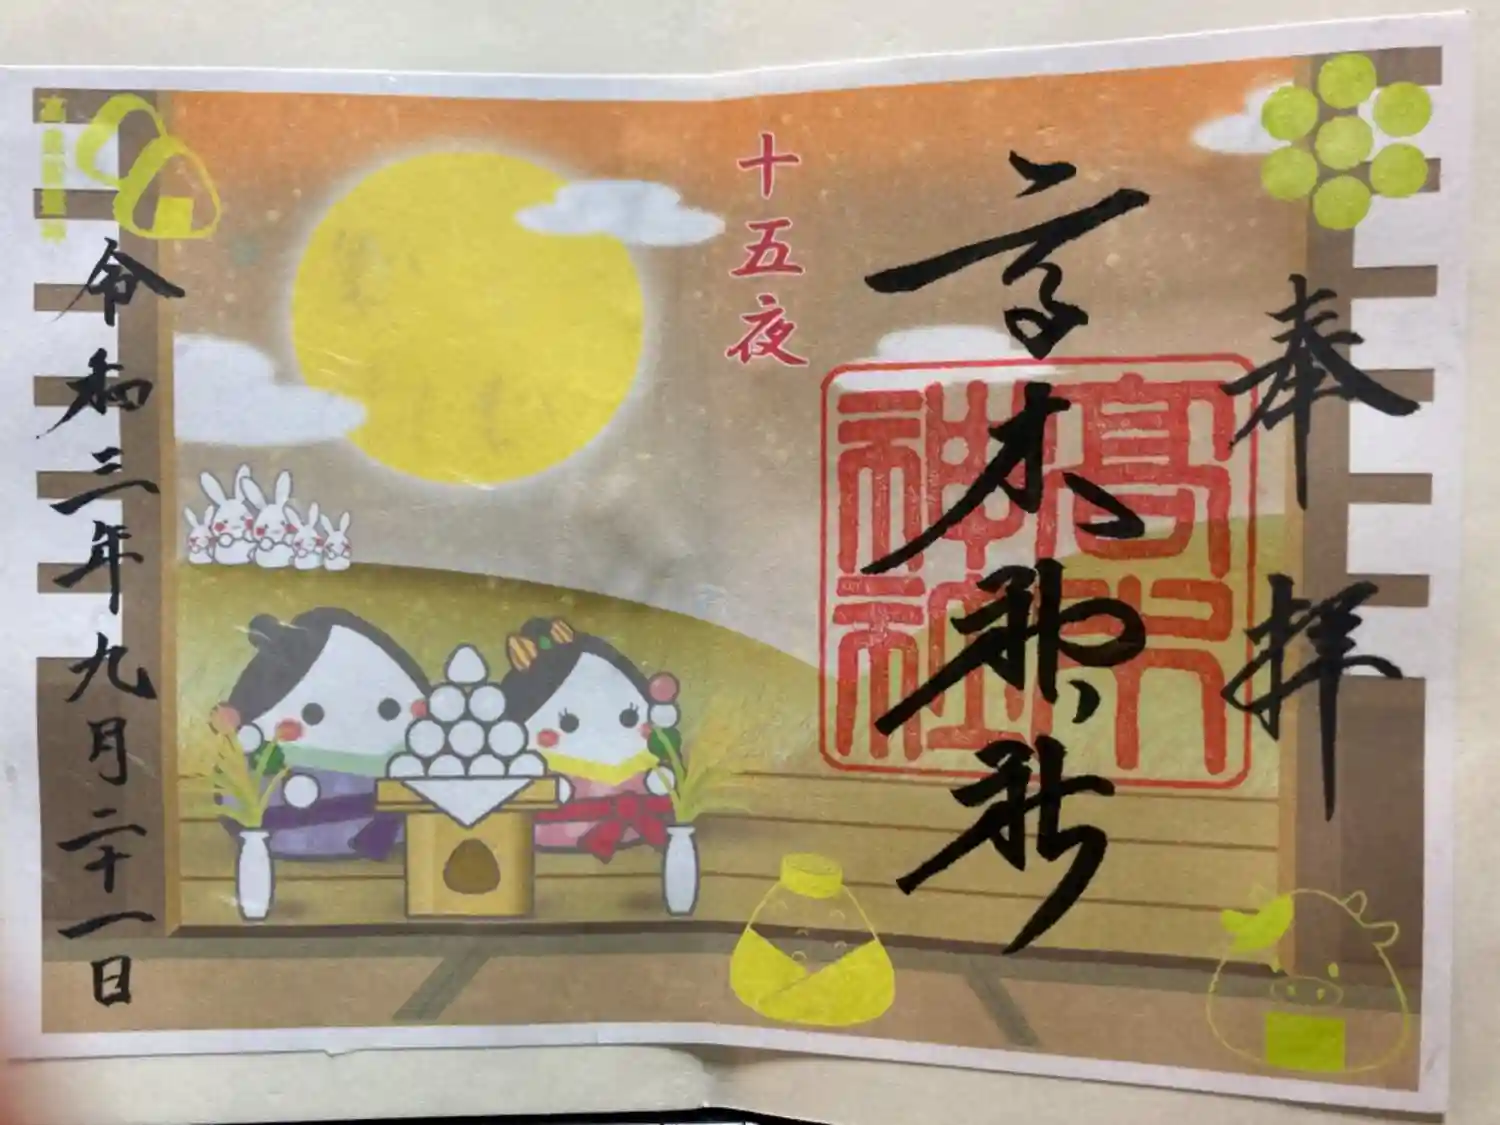 奉拝
高木神社
高木
神社
十五夜
令和三年九月二十一日